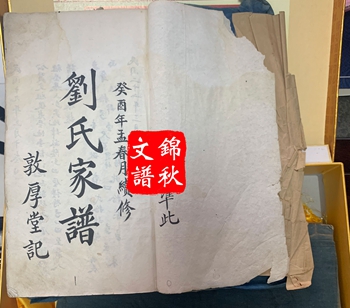 癸酉年孟春月續修
劉氏家譜
敦厚堂記
錦秋
文譜
此